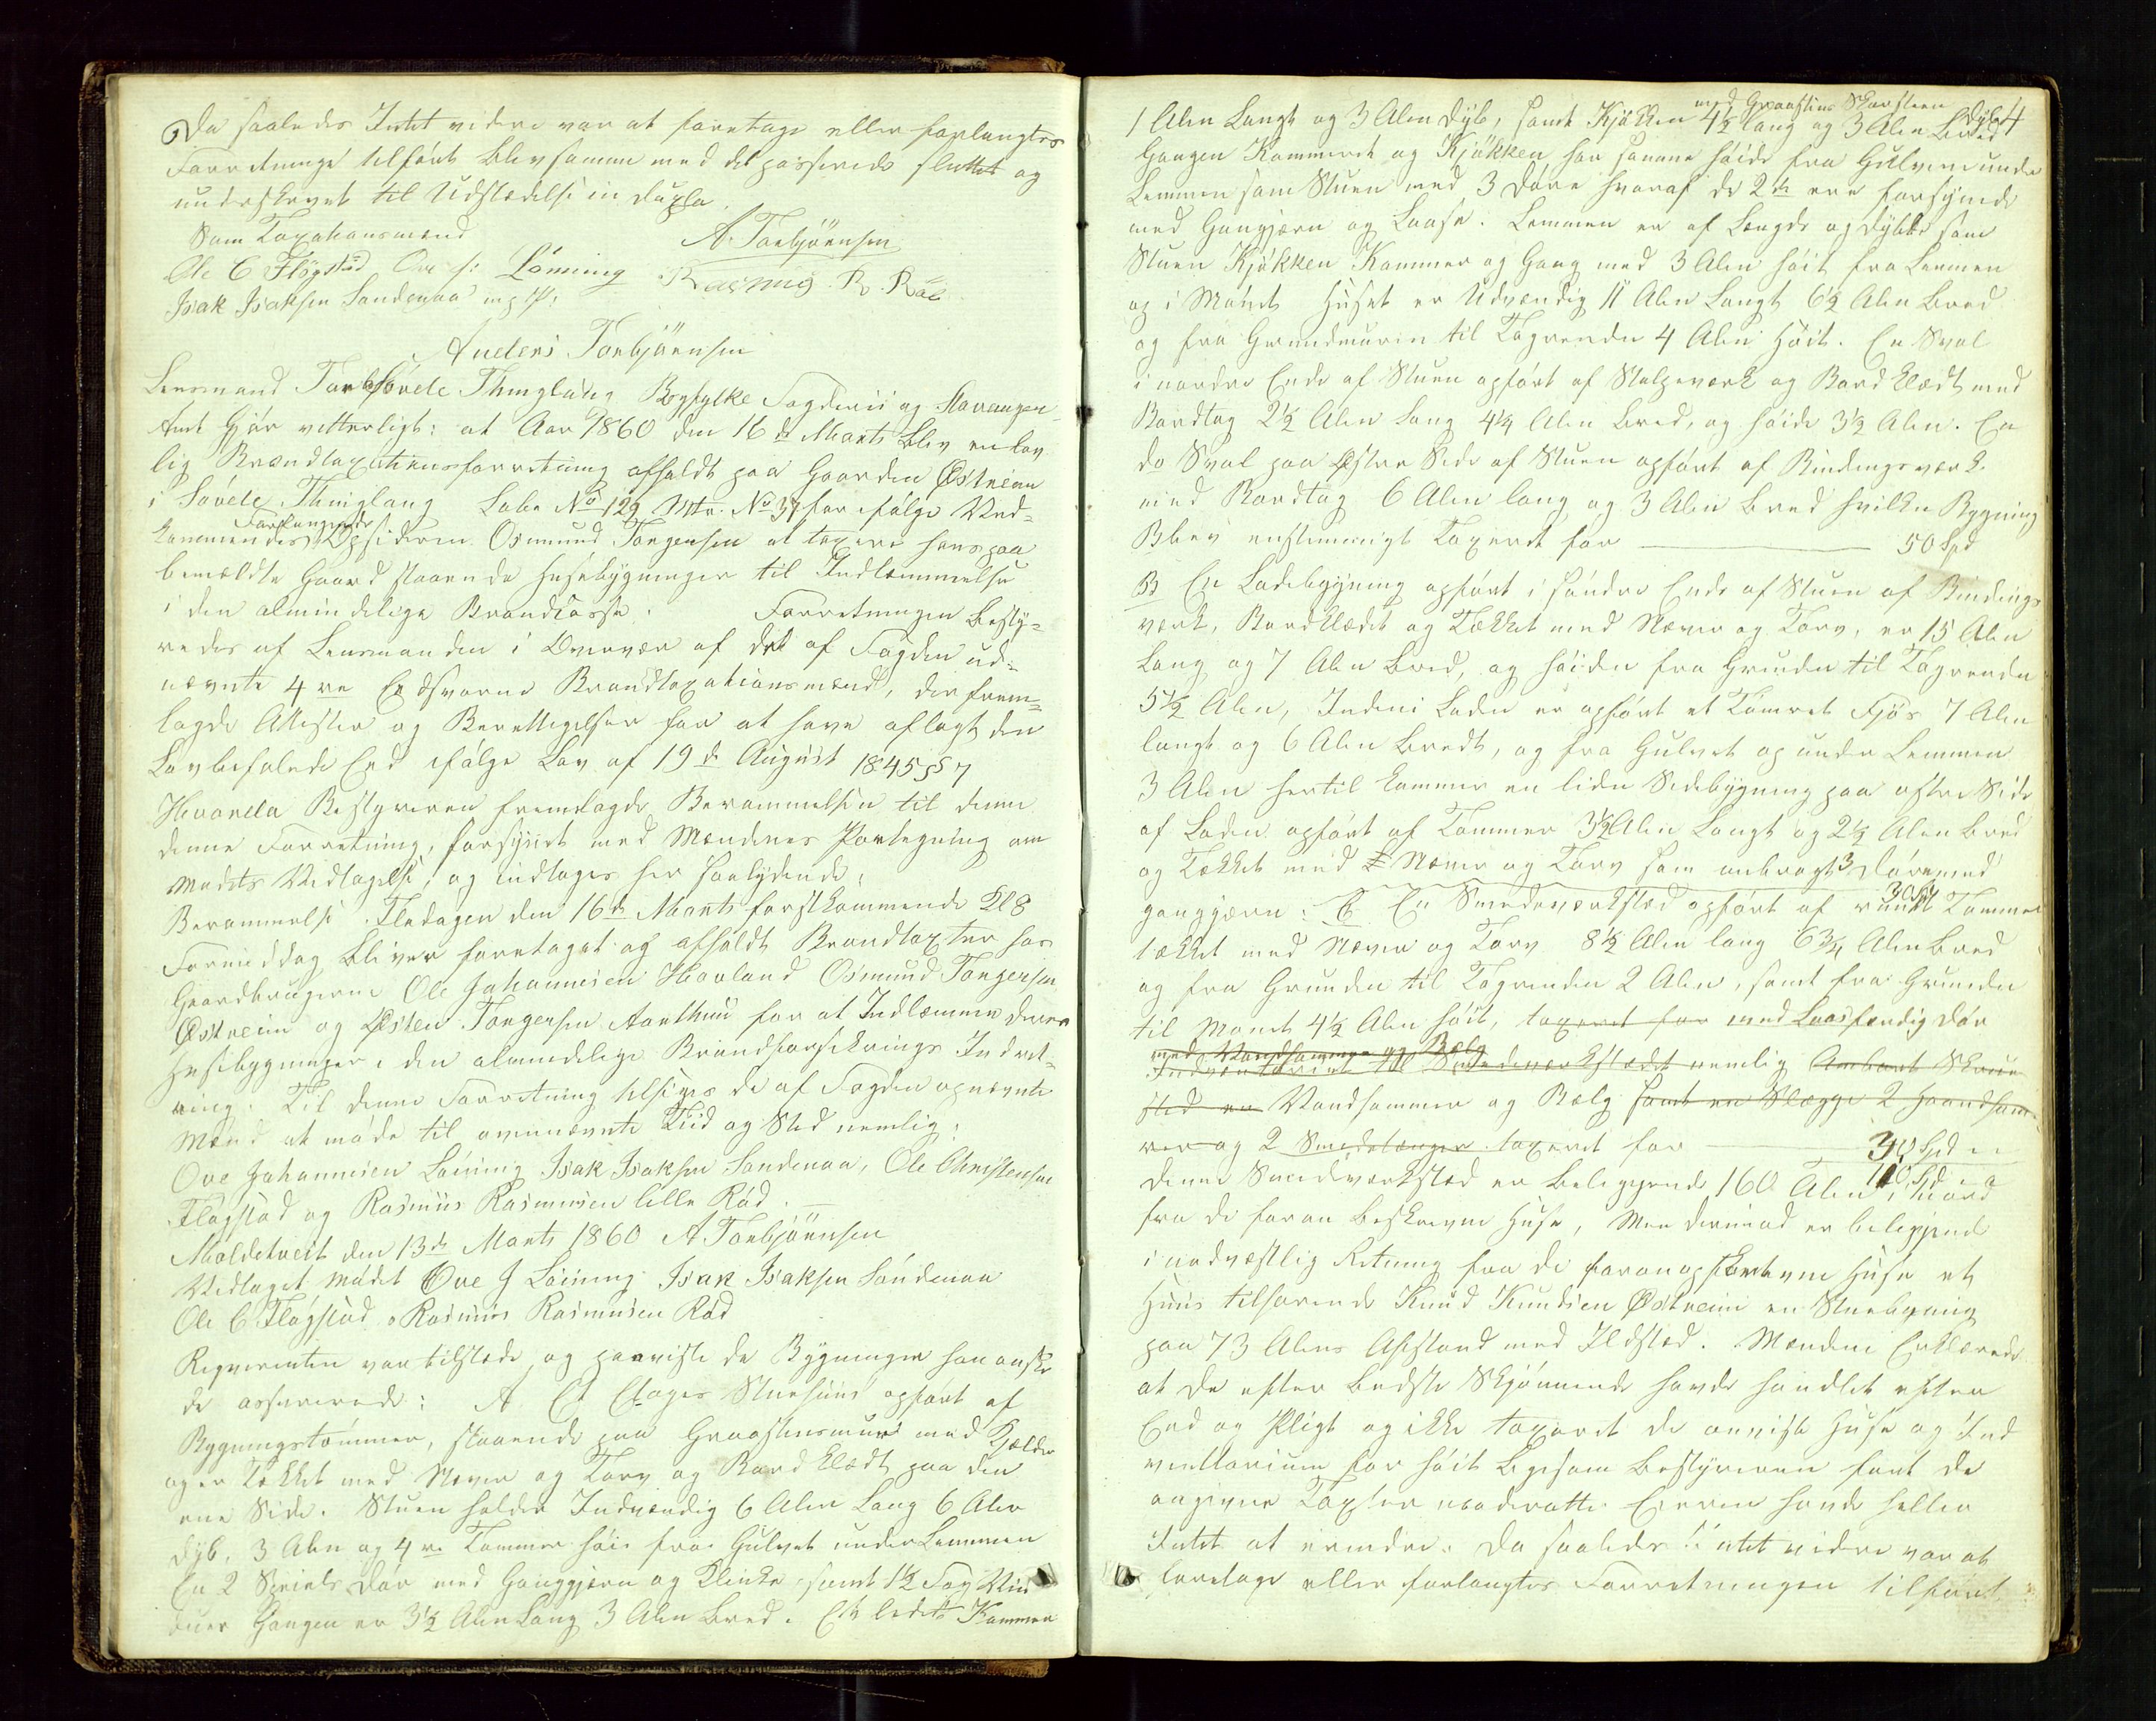 Da saaledes Intet videre var at foretage eller forlangtes
Forretninge tilført blev samme med det passerede sluttet og
underskrevet til Udstædelse in dupla.
Som Taxationsmænd
A. Torbjörnsen
Ole C Flögstad Ove J: Lönning Rasmus R. Röd
Isak Isaksen Sandenaa m. p. P:
Anders Torbjörnsen
Lensmand For Søvde Thinglaug Ryfylke Fogderii og Stavanger
Amt Gjör vitterligt: at Aar 1860 den 16de Marts blev en lov
lig Brandtaxationsforretning afholdt paa Gaarden Østreim
i Søvde Thinglaug Løbe No 129 Mtr. No 37 for ifølge Ved=
kommendes Forlangende Opsideren Osmund Torgersen at taxere hans paa
bemældte Gaard staaende Husebygninger til Indlemmelse
i den almindelige Brandcasse. Forretningen besty=
redes af Lensmanden i Overvær af det af Fogden ud=
nævnte 4re Eedsvorne Brandtaxationsmænd, der frem=
lagde Attester og Berettigelser for at have aflagt den
Lovbefalede Eed ifølge Lov af 19de August 1845 § 7
Hvorda Bestyreren fremlagde Berammelsen til denne
denne Forretning, forsynet med Mændenes Paategning om
Mødets Vedtagelse, og indtages her saalydende:
Berammelse. Fredagen den 16de Marts førstkommende Kl 8
Formiddag bliver foretaget og afholdt Brandtaxter hos
Gaardbrugerne Ole Johannesen Hovland Osmund Torgersen
Østreim og Østen Torgersen Aarthun for at Indlemme deres
Husebygninger i den almindelige Brandforsikrings Indret=
ning. Til denne Forretning tilsiges de af Fogden opnævnte
Mænd at møde til ovennævnte Tiid og Sted nemlig:
Ove Johannesen Løining Isak Isaksen Sandenaa, Ole Christensen
Fløgstad og Rasmus Rasmusen lille Rød. —
Maldetveit den 13de Marts 1860 A Torbjörnsen
Vedtaget Mødet Ove J Löining Isak Isaksen Sandenaa
Ole C. Fløgstad, Rasmus Rasmusen Rød
Reqvirenten var tilstede og paaviste de Bygninger han ønske
de assurerede: A Et Etages Stuehuus opført af
Bygningstømmer, staaende paa Graasteensmuur med Kjælder
og er Tækket med Næver og Torv og Bordklædt paa den
ene Side. Stuen holder Indvendig 6 Alen Lang 6 Alen
dyb. 3 Alen og 4re Tommer høi fra Gulvet under Lemmen
En 2 Speils Dør med Ganggjern og Klinke samt 1½ Fag Vin
duer Gangen er 3½ Alen Lang 3 Alen bred. Et lidet Kammer
1 Alen Langt og 3 Alen dyb, samt Kjøkken med Graasteens Skorsteen 4½ lang og 3 Alen bred dybt
Gangen Kammeret og Kjøkken har samme høide fra Gulvene under
Lemmen som Stuen med 3 Døre hvoraf de 2de ere forsynede
med Ganggjern og Laase. Lemmen er af Længde og dybde som
Stuen Kjøkken Kammer og Gang med 3 Alen høit fra Lemmen
op i Mønet Huset er Udvendig 11 Alen Langt 6½ Alen bred
og fra Grundmuren til Tagrenden 4 Alen Høit. En Sval
i nordre Ende af Stuen opført af Stolpeværk og Bordklædt med
Bordtag 2½ Alen Lang 4¼ Alen bred, og høide 3½ Alen. En
do Sval paa Østre Side af Stuen opført af Bindingsværk
med Bordtag 6 Alen lang og 3 Alen bred hvilken Bygning
Blev enstemmigt Taxeret for — 50 Spd
B En Ladebygning opført i søndre Ende af Stuen af Bindings
værk, Bordklædt og Tækket med Næver og Torv, er 15 Alen
Lang og 7 Alen bred, og høiden fra Grunden til Tagrenden
5½ Alen, Inden i Laden er opført et Tømret Fjøs 7 Alen
langt og 6 Alen bredt, og fra Gulvet op under Lemmen
3 Alen hertil kommer en liden Sidebygning paa østre Side
af Laden opført af Tømmer 3½ Alen Langt og 2½ Alen bred
og Tækket med Næver og Torv som anbragt 3 Døre med
ganggjern: 30 Spd C En Smedeværksted opført af rundt Tømmer
tækket med Næver og Torv 8½ Alen lang 6¾ Alen bred
og fra Grunden til Tagrenden 2 Alen, samt fra Grunden
til Mønet 4½ Alen høit, taxeret for med Laasfærdig Dør
med Vandhammer og Bælg
Indventariet til Smedeværkstædet nemlig Ambolt Skrue
sted en Vandhammer og Bælg samt en Slægge 2 Haandham
rer og 2 Smedetænger taxeret for — 30 Spd
10 Spd
Denne Smedværksted er beliggende 160 Alen i Nord
fra de foran beskrevne Huse, Men derimod er beliggende
i nordvestlig Retning fra de foranopskrevne Huse et
Huus tilhørende Knud Knudsen Østreim en Stuebygning
paa 73 Alens Afstand med Ildsted. Mændene Erklærede
at de efter bedste Skjønnende havde handlet efter
Eed og Pligt og ikke taxeret de anviste Huse og Ind
ventarium for høit ligesom bestyreren fant de
angivne Taxter moderatte. Eieren havde heller
Intet at erindre. Da saaledes Intet videre var at
foretage eller forlangtes Forretningen tilført